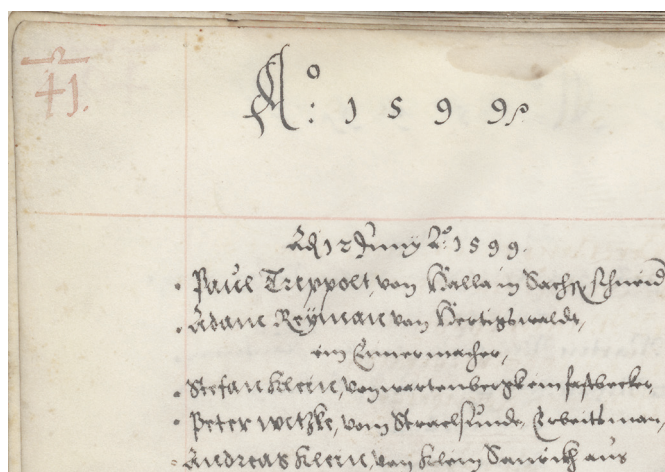 41.
Ao: 1599
Adj 12 Junij Ao: 1599.
Paul Treppolt, von Halla in Sachs schneid
Adam Reÿman von Hertigswalde,
ein Eimermacher,
Stefan Kleine, von wartenbergk ein fastbecker,
Peter witzke, vom Straelsunde, Erbeitsman,
Andreas Kleine, von Klein aus